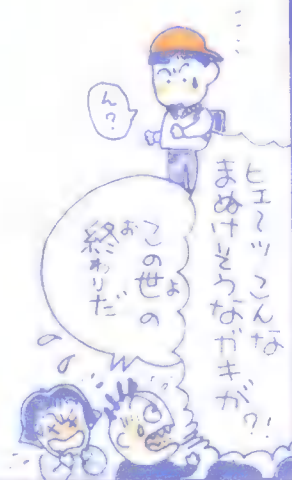 ヒエ〜ッこんな
まぬけそうなガキが?!
ん?
この世の
よ
終わりだ
お